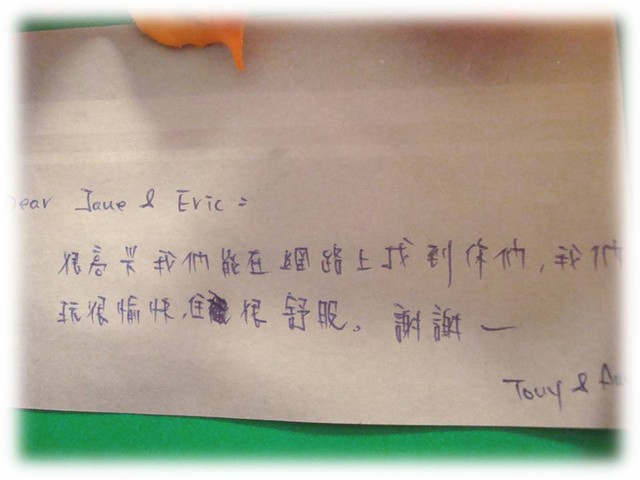 Dear Jane & Eric:
很高興我們能在網路上找到你們,我們
玩很愉快,住很舒服。謝謝—
Tony &